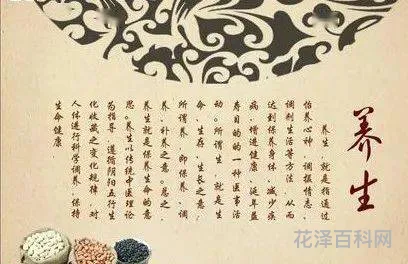 养生
养生，就是指通过
怡养心神，调摄情志、
调剂生活等方法，从而
达到保养身体、减少疾
病、增进健康、延年益
寿目的的一种医事活
动。所谓生，就是生
命、生存、生长之意；
所谓养，即保养、调
养、补养之意。总之，
养生就是保养生命的意
思。养生以传统中医理论
为指导，遵循阴阳五行生
化收藏之变化规律，对
人体进行科学调养，保持
生命健康。
花泽百科网